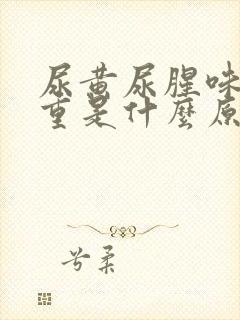 尿黄尿腥味
重是什麼原
兮柔